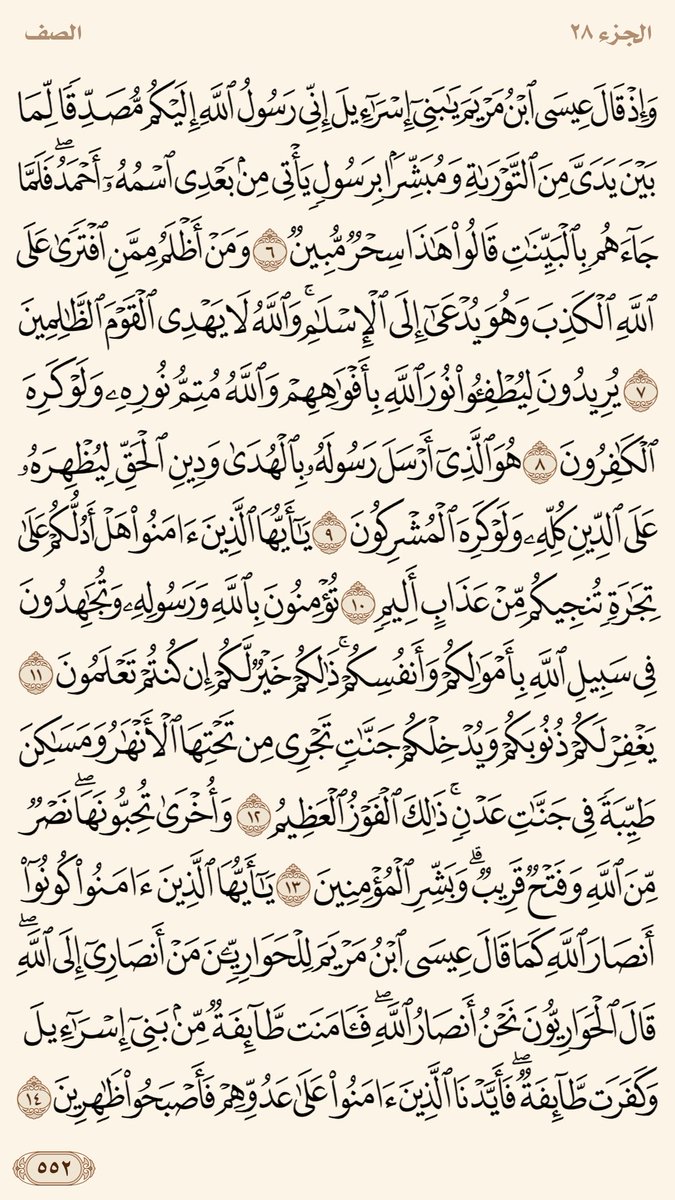 الجزء ٢٨
الصف
وَإِذْ قَالَ عِيسَى ٱبْنُ مَرْيَمَ يَـٰبَنِىٓ إِسْرَٰٓءِيلَ إِنِّى رَسُولُ ٱللَّهِ إِلَيْكُم مُّصَدِّقًا لِّمَا
بَيْنَ يَدَىَّ مِنَ ٱلتَّوْرَىٰةِ وَمُبَشِّرًۢا بِرَسُولٍ يَأْتِى مِنۢ بَعْدِى ٱسْمُهُۥٓ أَحْمَدُ ۖ فَلَمَّا
جَآءَهُم بِٱلْبَيِّنَـٰتِ قَالُوا۟ هَـٰذَا سِحْرٌ مُّبِينٌ ٦ وَمَنْ أَظْلَمُ مِمَّنِ ٱفْتَرَىٰ عَلَى
ٱللَّهِ ٱلْكَذِبَ وَهُوَ يُدْعَىٰٓ إِلَى ٱلْإِسْلَـٰمِ ۚ وَٱللَّهُ لَا يَهْدِى ٱلْقَوْمَ ٱلظَّـٰلِمِينَ
٧ يُرِيدُونَ لِيُطْفِـُٔوا۟ نُورَ ٱللَّهِ بِأَفْوَٰهِهِمْ وَٱللَّهُ مُتِمُّ نُورِهِۦ وَلَوْ كَرِهَ
ٱلْكَـٰفِرُونَ ٨ هُوَ ٱلَّذِىٓ أَرْسَلَ رَسُولَهُۥ بِٱلْهُدَىٰ وَدِينِ ٱلْحَقِّ لِيُظْهِرَهُۥ
عَلَى ٱلدِّينِ كُلِّهِۦ وَلَوْ كَرِهَ ٱلْمُشْرِكُونَ ٩ يَـٰٓأَيُّهَا ٱلَّذِينَ ءَامَنُوا۟ هَلْ أَدُلُّكُمْ عَلَىٰ
تِجَـٰرَةٍ تُنجِيكُم مِّنْ عَذَابٍ أَلِيمٍ ١٠ تُؤْمِنُونَ بِٱللَّهِ وَرَسُولِهِۦ وَتُجَـٰهِدُونَ
فِى سَبِيلِ ٱللَّهِ بِأَمْوَٰلِكُمْ وَأَنفُسِكُمْ ۚ ذَٰلِكُمْ خَيْرٌ لَّكُمْ إِن كُنتُمْ تَعْلَمُونَ ١١
يَغْفِرْ لَكُمْ ذُنُوبَكُمْ وَيُدْخِلْكُمْ جَنَّـٰتٍ تَجْرِى مِن تَحْتِهَا ٱلْأَنْهَـٰرُ وَمَسَـٰكِنَ
طَيِّبَةً فِى جَنَّـٰتِ عَدْنٍ ۚ ذَٰلِكَ ٱلْفَوْزُ ٱلْعَظِيمُ ١٢ وَأُخْرَىٰ تُحِبُّونَهَا ۖ نَصْرٌ
مِّنَ ٱللَّهِ وَفَتْحٌ قَرِيبٌ ۗ وَبَشِّرِ ٱلْمُؤْمِنِينَ ١٣ يَـٰٓأَيُّهَا ٱلَّذِينَ ءَامَنُوا۟ كُونُوٓا۟
أَنصَارَ ٱللَّهِ كَمَا قَالَ عِيسَى ٱبْنُ مَرْيَمَ لِلْحَوَارِيِّـۧنَ مَنْ أَنصَارِىٓ إِلَى ٱللَّهِ ۖ
قَالَ ٱلْحَوَارِيُّونَ نَحْنُ أَنصَارُ ٱللَّهِ ۖ فَـَٔامَنَت طَّآئِفَةٌ مِّنۢ بَنِىٓ إِسْرَٰٓءِيلَ
وَكَفَرَت طَّآئِفَةٌ ۖ فَأَيَّدْنَا ٱلَّذِينَ ءَامَنُوا۟ عَلَىٰ عَدُوِّهِمْ فَأَصْبَحُوا۟ ظَـٰهِرِينَ ١٤
٥٥٢